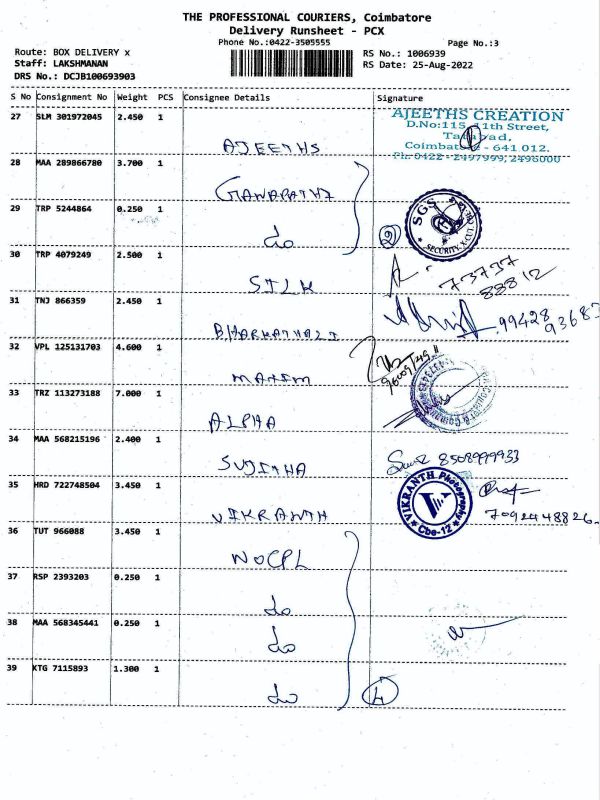 THE PROFESSIONAL COURIERS, Coimbatore
Delivery Runsheet - PCX
Phone No.:0422-3505555 Page No.:3
Route: BOX DELIVERY x RS No.: 1006939
Staff: LAKSHMANAN RS Date: 25-Aug-2022
DRS No.: DCJB100693903
S No Consignment No Weight PCS Consignee Details Signature
27 SLM 301972045 2.450 1
AJEETHS
AJEETHS CREATION
D.No:115, 11th Street,
Tatabad,
Coimbatore - 641 012.
Ph: 0422 - 2497999, 2496000
1
28 MAA 289866780 3.700 1
GANAPATHI
29 TRP 5244864 0.250 1
do
2
SGS
SECURITY
30 TRP 4079249 2.500 1
SILK
73737
88812
31 TNJ 866359 2.450 1
BHARKATHALI
99428
93683
32 VPL 125131703 4.600 1
MAHIM
33 TRZ 113273188 7.000 1
ALPHA
34 MAA 568215196 2.400 1
SUJITHA
8508999933
35 HRD 722748504 3.450 1
VIKRANTH
VIKRANTH Photography
V
Cbe-12
7092448826
36 TUT 966088 3.450 1
NOCPL
37 RSP 2393203 0.250 1
do
38 MAA 568345441 0.250 1
do
39 KTG 7115893 1.300 1
do
4